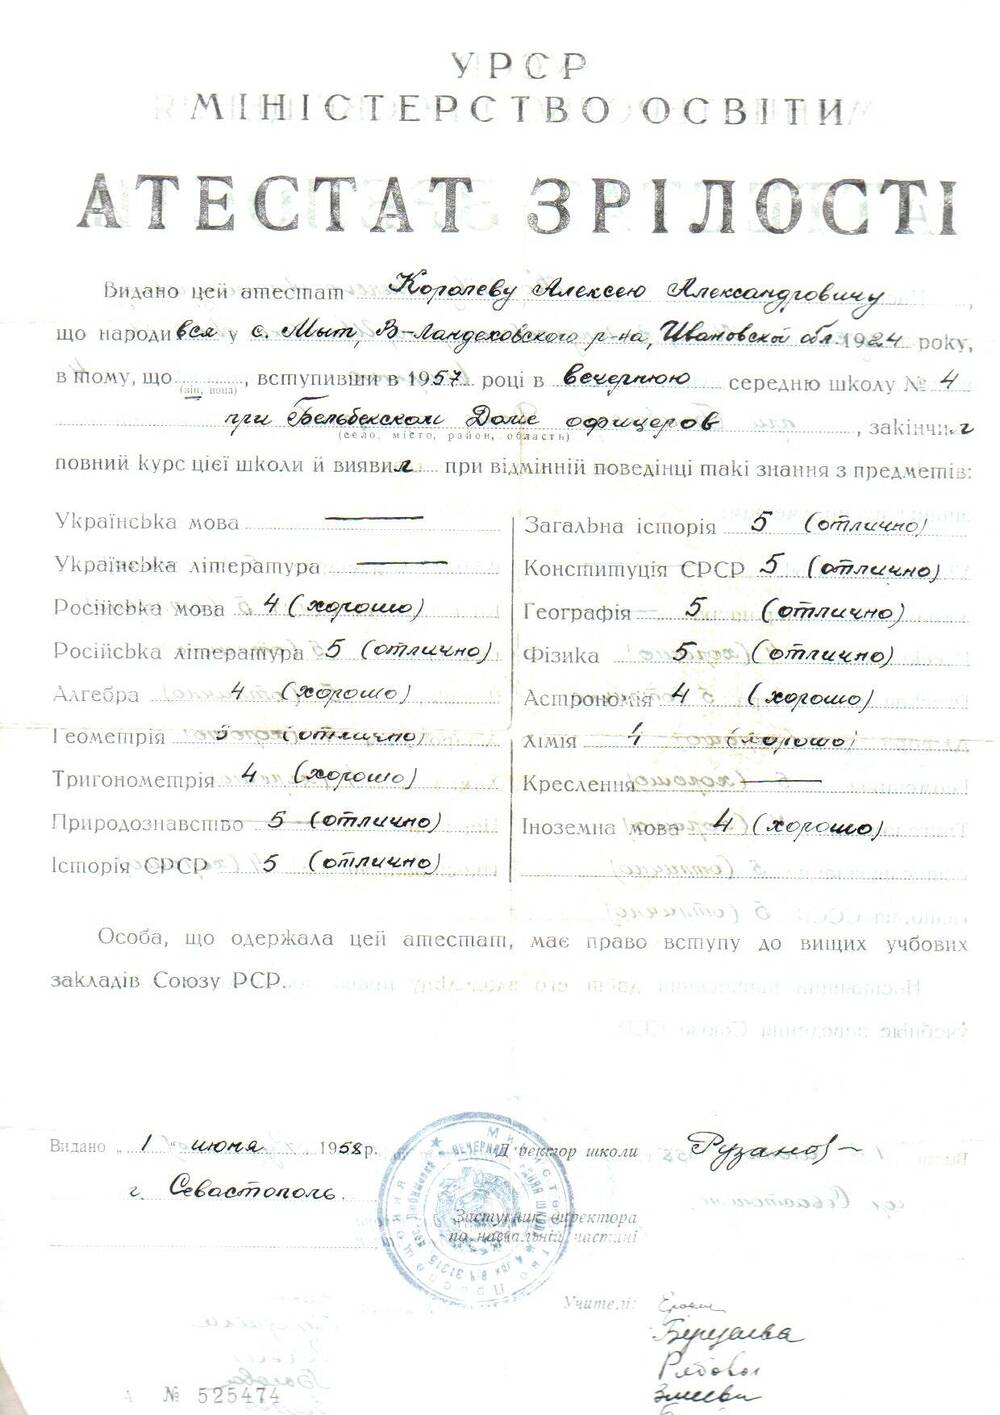 УРСР
МІНІСТЕРСТВО ОСВІТИ
АТЕСТАТ ЗРІЛОСТІ
Видано цей атестат Королеву Алексею Александровичу,
що народився у с. Мыт, В-Ландеховского р-на, Ивановской обл. 1924 року,
в тому, що , вступивши в 1957 році в вечернюю середню школу № 4
(він, вона)
при Бельбекском Доме офицеров, закінчил
(село, місто, район, область)
повний курс цієї школи й виявил при відмінній поведінці такі знання з предметів:
Українська мова —
Українська література —
Російська мова 4 (хорошо)
Російська література 5 (отлично)
Алгебра 4 (хорошо)
Геометрія 5 (отлично)
Тригонометрія 4 (хорошо)
Природознавство 5 (отлично)
Історія СРСР 5 (отлично)
Загальна історія 5 (отлично)
Конституція СРСР 5 (отлично)
Географія 5 (отлично)
Фізика 5 (отлично)
Астрономія 4 (хорошо)
Хімія 4 (хорошо)
Креслення —
Іноземна мова 4 (хорошо)
Особа, що одержала цей атестат, має право вступу до вищих учбових
закладів Союзу РСР.
Видано „1" июня 1958 р.
г. Севастополь.
Директор школи Рузанов
Заступник директора
по навчальній частині
Учителі:
Рябова
№ 525474